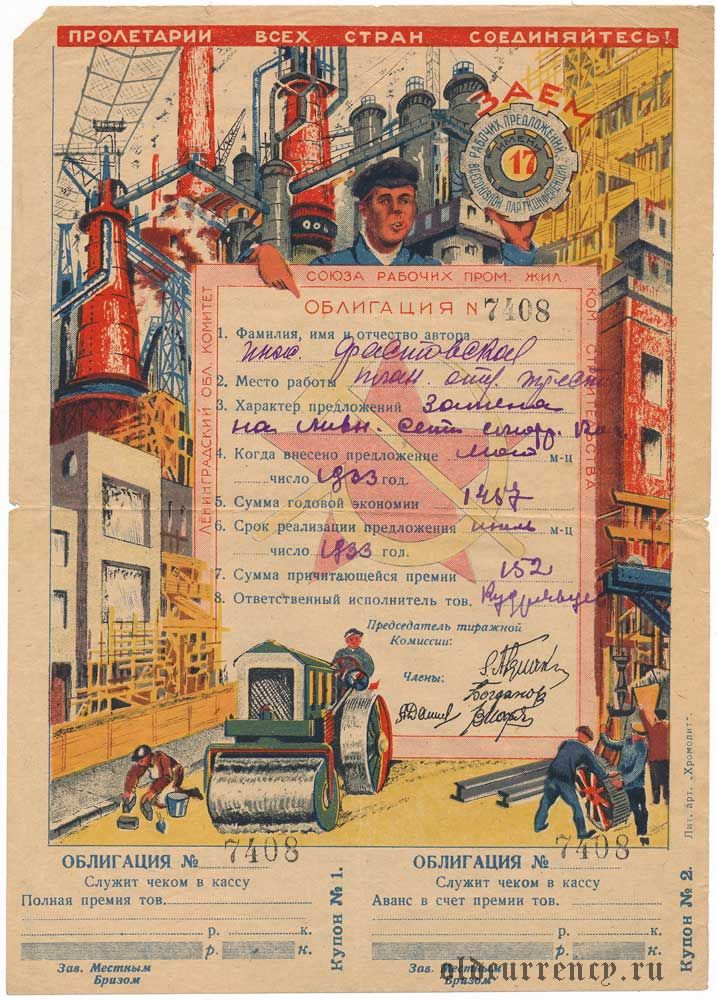 ПРОЛЕТАРИИ ВСЕХ СТРАН СОЕДИНЯЙТЕСЬ!
ЗАЕМ
РАБОЧИХ ПРЕДЛОЖЕНИЙ
ИМЕНИ
17
ВСЕСОЮЗНОЙ ПАРТКОНФЕРЕНЦИИ
ЛЕНИНГРАДСКИЙ ОБЛ. КОМИТЕТ
СОЮЗА РАБОЧИХ ПРОМ. ЖИЛ.
КОМ. СТРОИТЕЛЬСТВА
ОБЛИГАЦИЯ N 7408
1. Фамилия, имя и отчество автора
2. Место работы план.
3. Характер предложений замена
на ливн. сети
4. Когда внесено предложение м-ц
число 1933 год.
5. Сумма годовой экономии 1487
6. Срок реализации предложения июль м-ц
число 1933 год.
7. Сумма причитающейся премии 152
8. Ответственный исполнитель тов.
Председатель тиражной
Комиссии:
Члены:
Богданов
ОБЛИГАЦИЯ № 7408
Служит чеком в кассу
Полная премия тов.
р. к.
р. к.
Зав. Местным
Бризом
Купон № 1.
ОБЛИГАЦИЯ № 7408
Служит чеком в кассу
Аванс в счет премии тов.
р. к.
р. к.
Зав. Местным
Бризом
Купон № 2.
Лит. арт. „Хромолит".
oldcurrency.ru